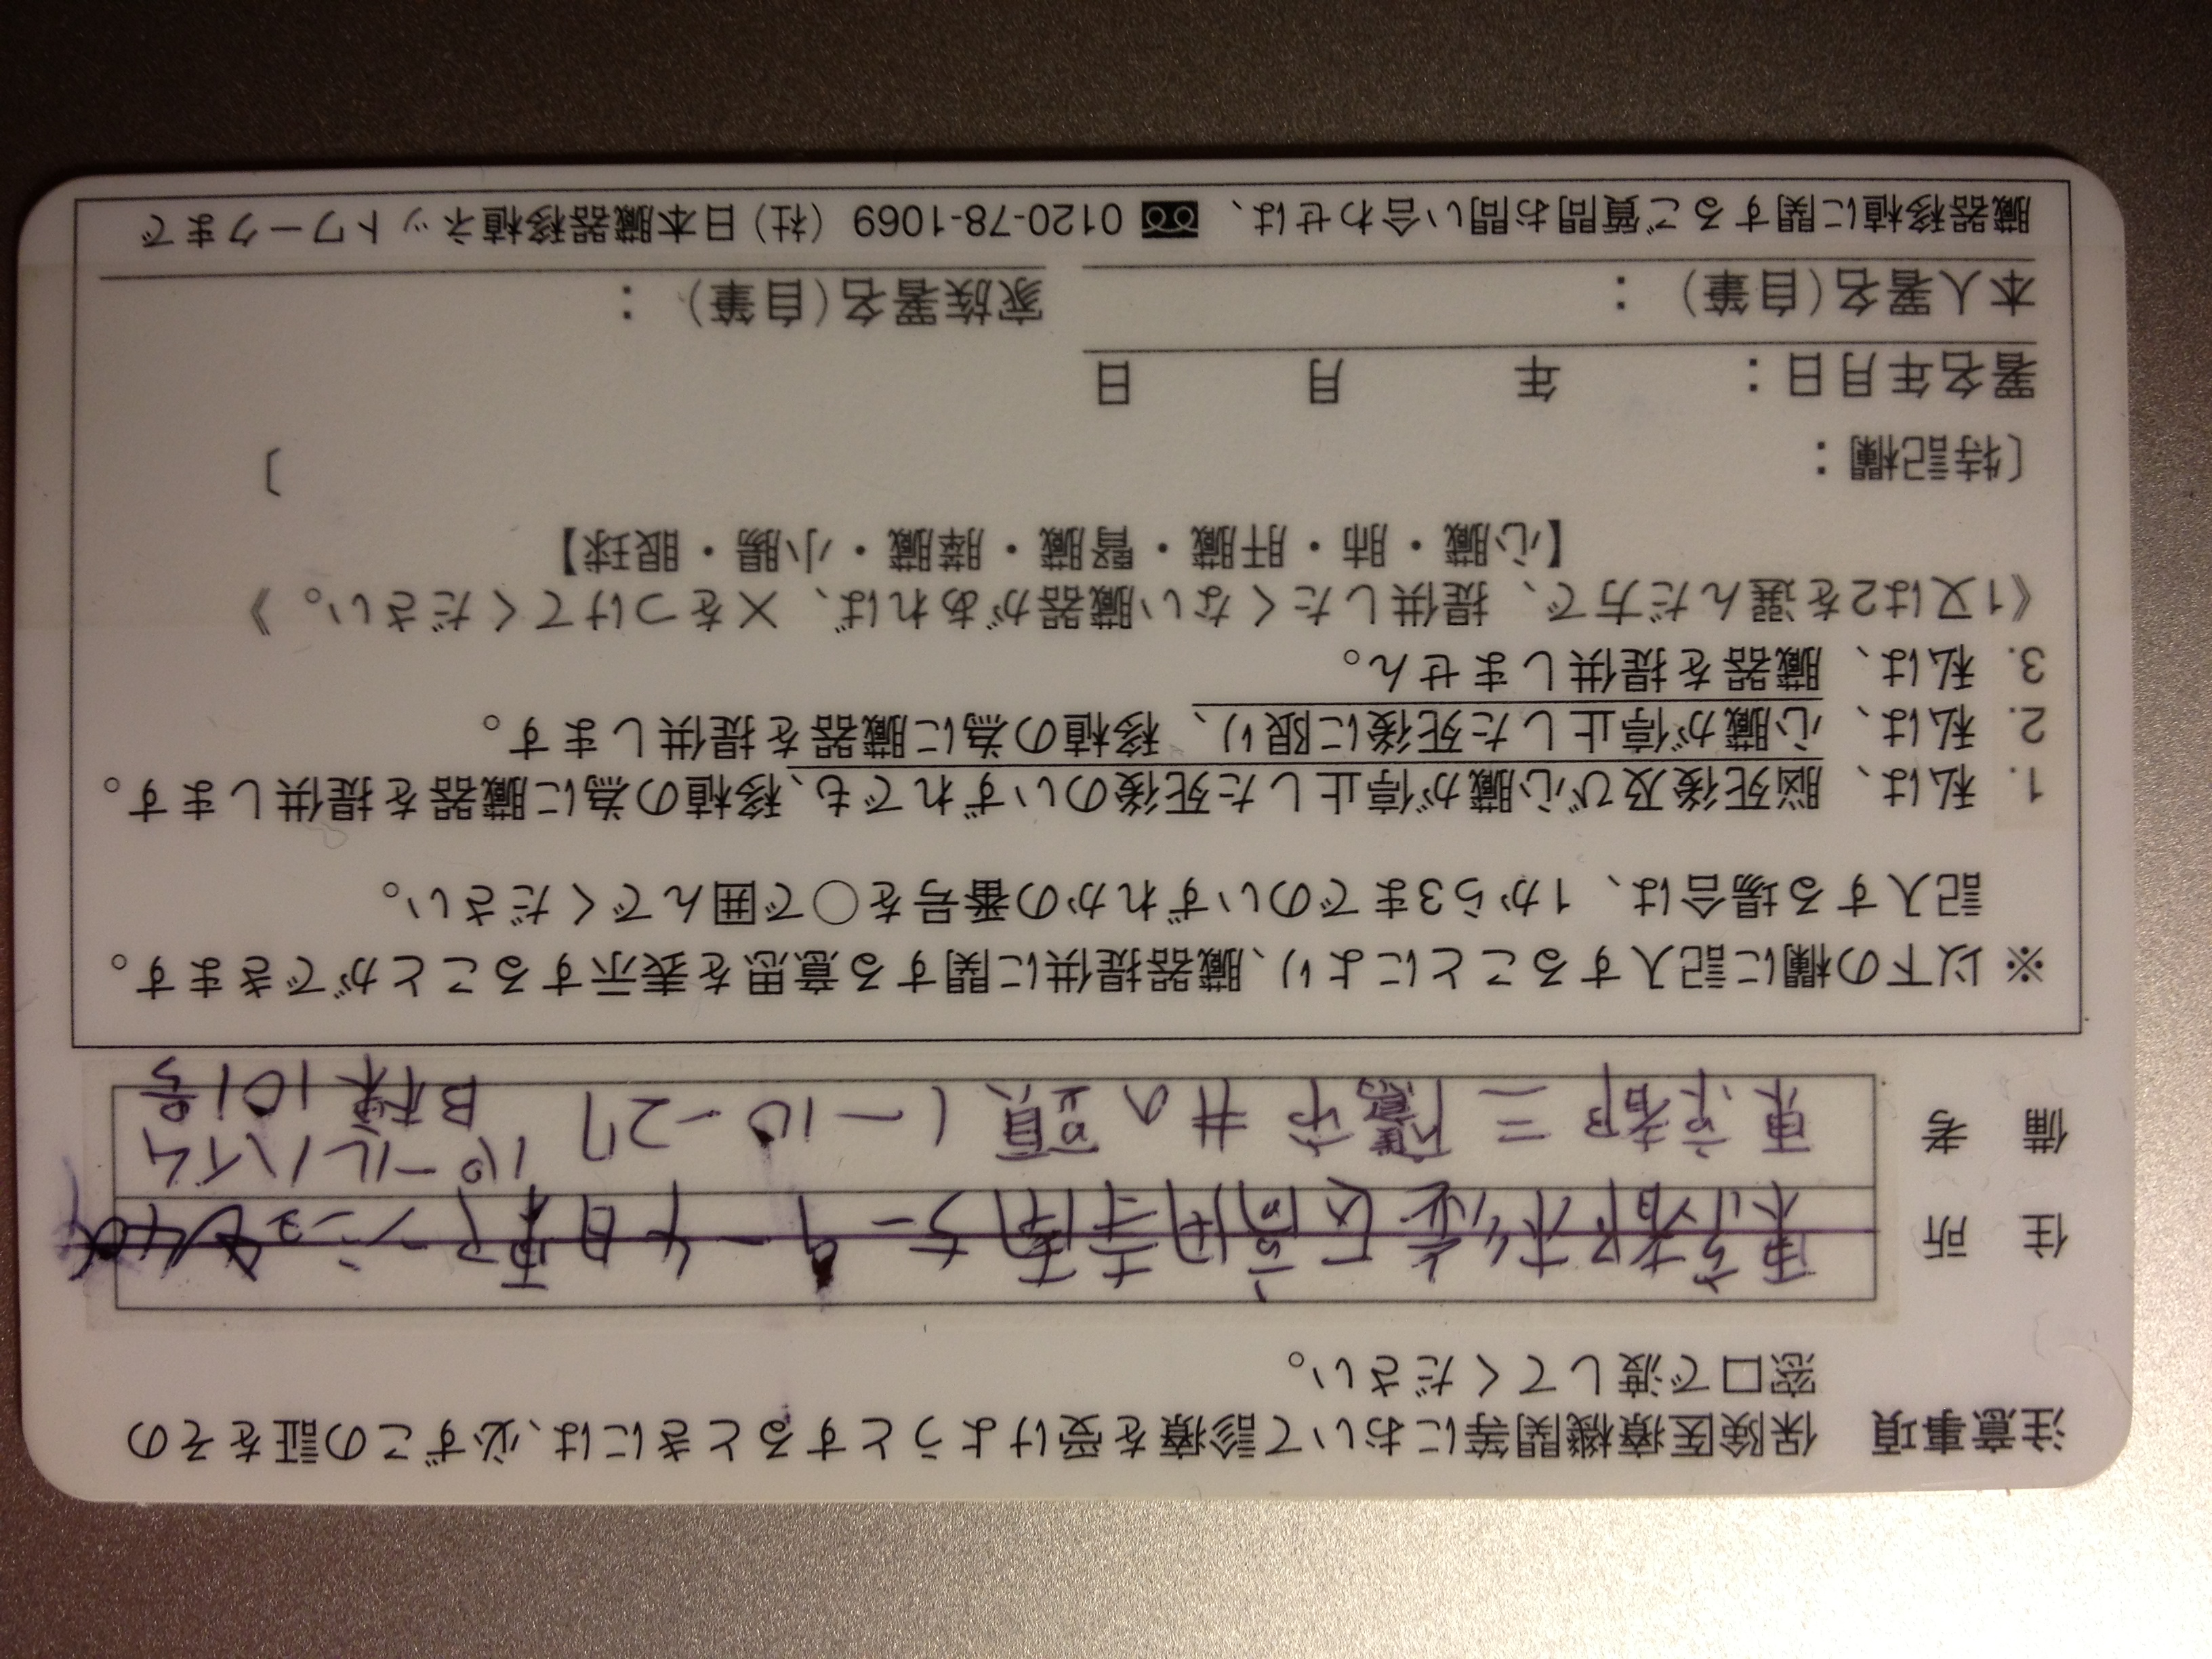 注意事項 保険医療機関等において診療を受けようとするときには、必ずこの証をその
窓口で渡してください。
住 所 東京都杉並区高円寺南5-9-4日東マンション
備 考 東京都三鷹市井の頭1-10-27 パールハイム
B棟101号
※ 以下の欄に記入することにより、臓器提供に関する意思を表示することができます。
記入する場合は、1から3までのいずれかの番号を○で囲んでください。
1. 私は、脳死後及び心臓が停止した死後のいずれでも、移植の為に臓器を提供します。
2. 私は、心臓が停止した死後に限り、移植の為に臓器を提供します。
3. 私は、臓器を提供しません。
《1又は2を選んだ方で、提供したくない臓器があれば、×をつけてください。》
【心臓・肺・肝臓・腎臓・膵臓・小腸・眼球】
〔特記欄： 〕
署名年月日： 年 月 日
本人署名(自筆) ： 家族署名(自筆) ：
臓器移植に関するご質問お問い合わせは、 0120-78-1069 (社)日本臓器移植ネットワークまで